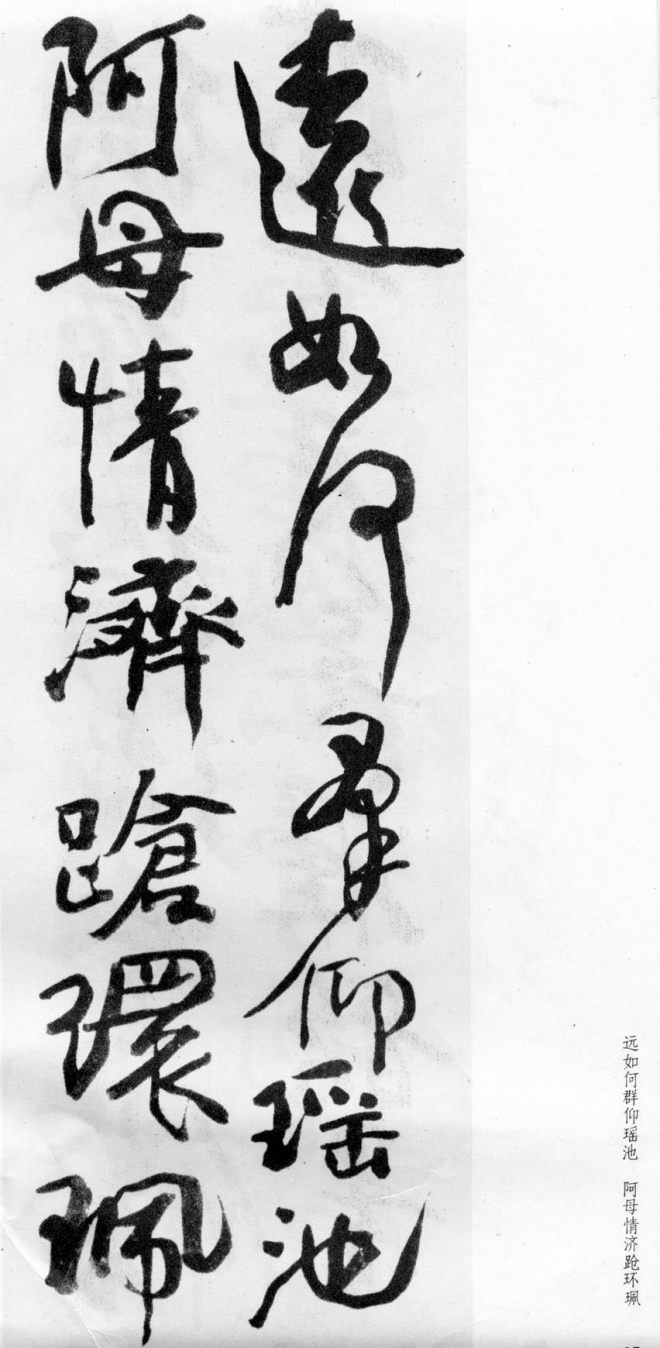 遠如何羣仰瑶池
阿母情濟蹌環珮
远如何群仰瑶池 阿母情济跄环珮